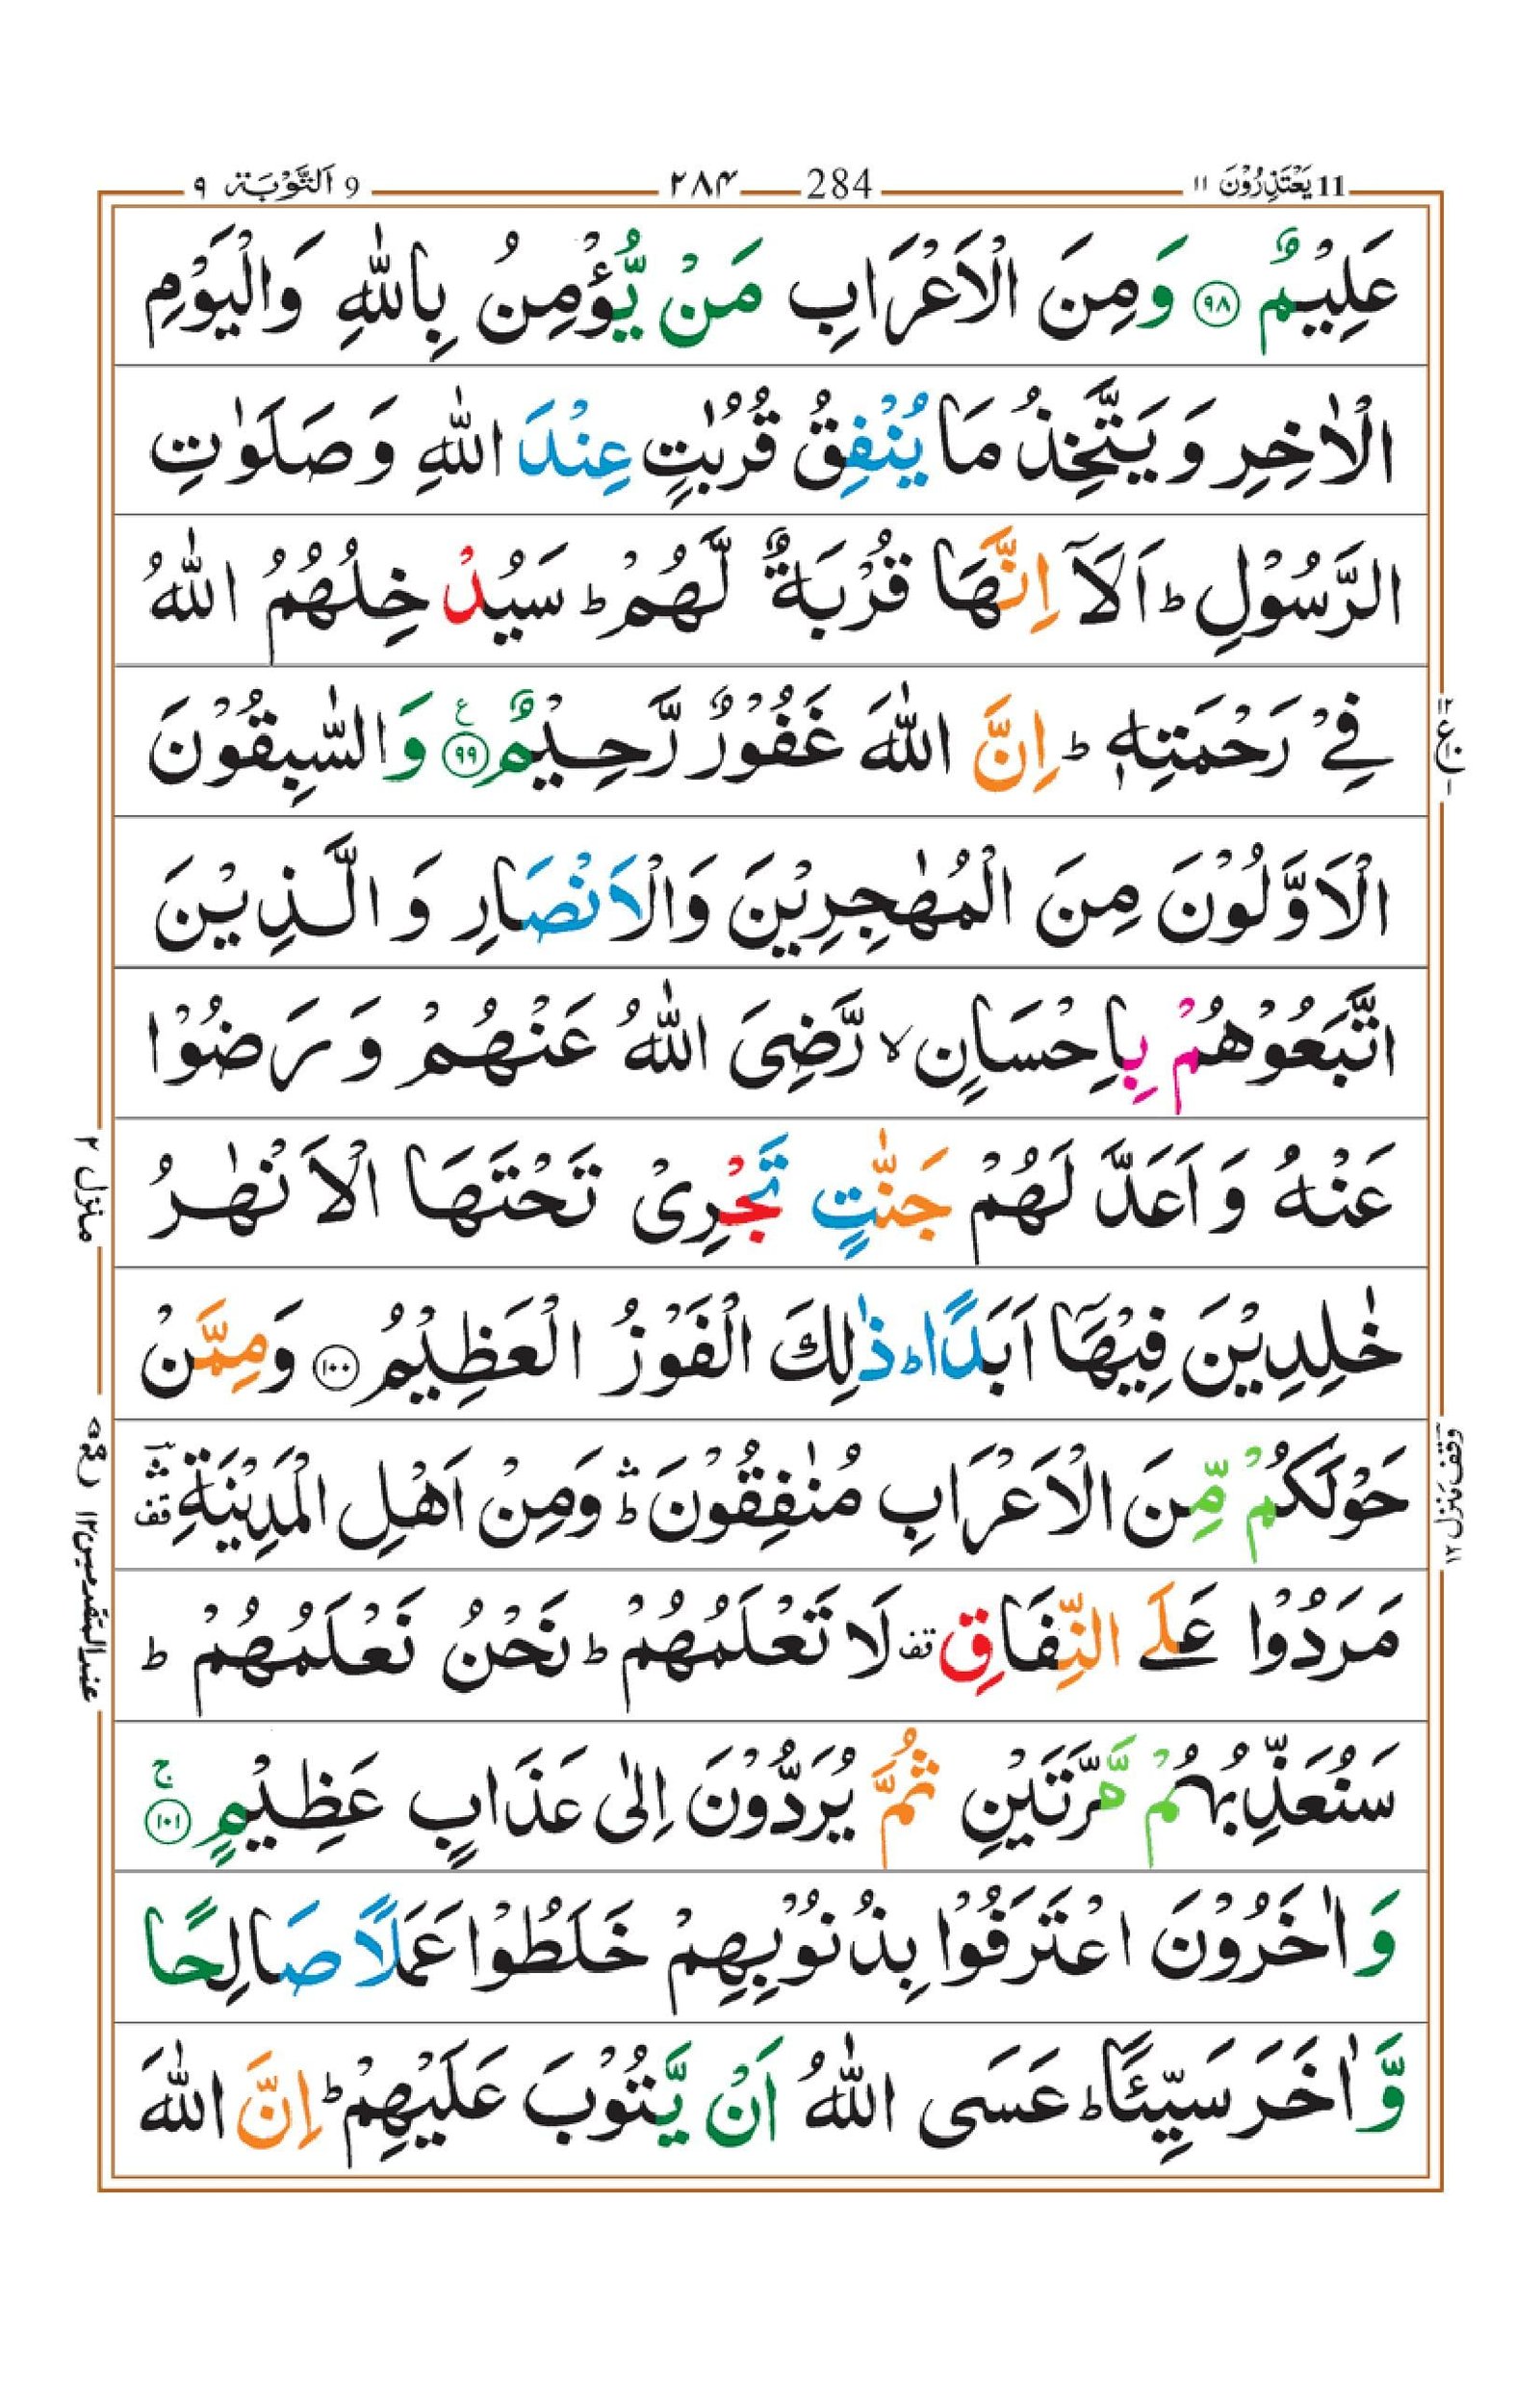 11 يَعْتَذِرُوْنَ ۱۱ 284 ۲۸۴ 9 اَلتَّوْبَة ۹
عَلِيْمٌ ۹۸ وَمِنَ الْاَعْرَابِ مَنْ يُّؤْمِنُ بِاللّٰهِ وَالْيَوْمِ
الْاٰخِرِ وَيَتَّخِذُ مَا يُنْفِقُ قُرُبٰتٍ عِنْدَ اللّٰهِ وَصَلَوٰتِ
الرَّسُوْلِ ؕ اَلَاۤ اِنَّهَا قُرْبَةٌ لَّهُمْ ؕ سَيُدْخِلُهُمُ اللّٰهُ
فِيْ رَحْمَتِهٖ ؕ اِنَّ اللّٰهَ غَفُوْرٌ رَّحِيْمٌ ۹۹ ع وَالسّٰبِقُوْنَ
الْاَوَّلُوْنَ مِنَ الْمُهٰجِرِيْنَ وَالْاَنْصَارِ وَالَّذِيْنَ
اتَّبَعُوْهُمْ بِاِحْسَانٍ ۙ رَّضِيَ اللّٰهُ عَنْهُمْ وَرَضُوْا
عَنْهُ وَاَعَدَّ لَهُمْ جَنّٰتٍ تَجْرِيْ تَحْتَهَا الْاَنْهٰرُ
خٰلِدِيْنَ فِيْهَاۤ اَبَدًا ؕ ذٰلِكَ الْفَوْزُ الْعَظِيْمُ ۱۰۰ وَمِمَّنْ
حَوْلَكُمْ مِّنَ الْاَعْرَابِ مُنٰفِقُوْنَ ۛؕ وَمِنْ اَهْلِ الْمَدِيْنَةِ ۛ قف
مَرَدُوْا عَلَى النِّفَاقِ قف لَا تَعْلَمُهُمْ ؕ نَحْنُ نَعْلَمُهُمْ ؕ
سَنُعَذِّبُهُمْ مَّرَّتَيْنِ ثُمَّ يُرَدُّوْنَ اِلٰى عَذَابٍ عَظِيْمٍ ۱۰۱ ج
وَاٰخَرُوْنَ اعْتَرَفُوْا بِذُنُوْبِهِمْ خَلَطُوْا عَمَلًا صَالِحًا
وَّاٰخَرَ سَيِّئًا ؕ عَسَى اللّٰهُ اَنْ يَّتُوْبَ عَلَيْهِمْ ؕ اِنَّ اللّٰهَ
منزل ۲
وقف منزل ۱۲